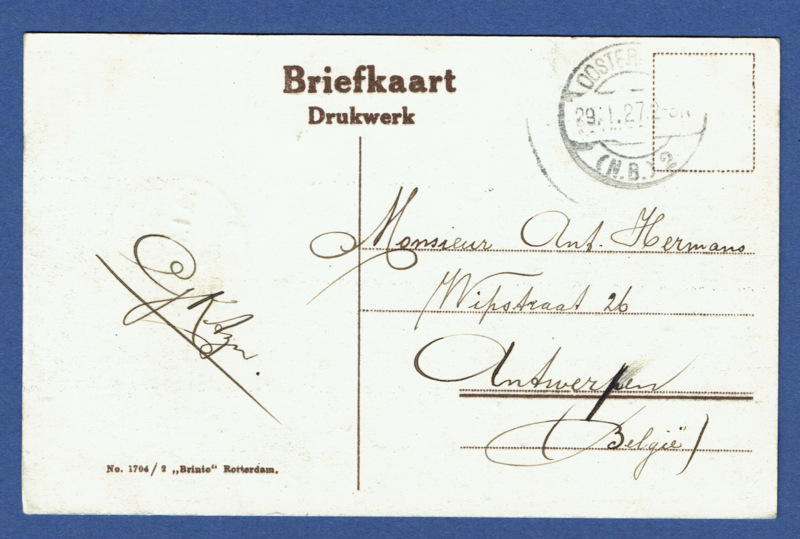 Briefkaart
Drukwerk
OOSTER
29.1.27
(N.B.) 2
Monsieur Ant. Hermans
Wipstraat 26
Antwerpen
(België)
No. 1704 / 2 „Brinio“ Rotterdam.